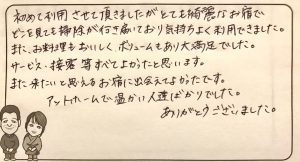 初めて利用させて頂きましたがとても綺麗なお宿で
どこを見ても掃除が行き届いており気持ちよく利用できました。
また、お料理もおいしくボリュームもあり大満足でした。
サービス・接客 等すべてよかったと思います。
また来たいと思えるお宿に出会えてよかったです。
アットホームで温かい人達ばかりでした。
ありがとうございました。